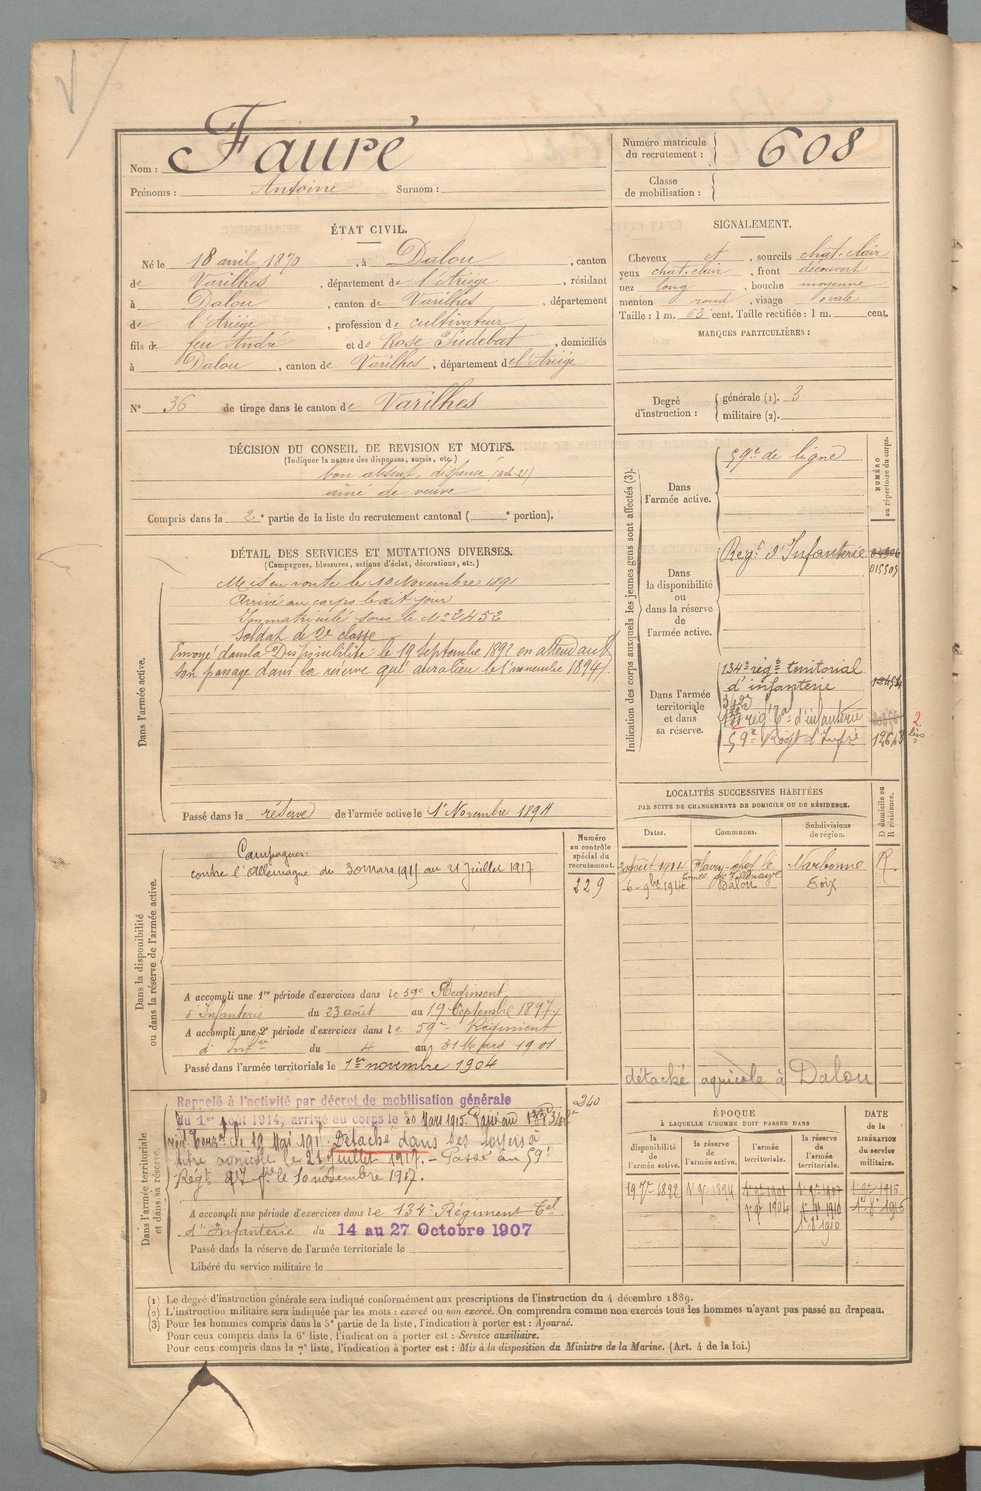 Nom : Fauré
Prénoms : Antoine Surnom :
Numéro matricule du recrutement : 608
Classe de mobilisation :
ÉTAT CIVIL.
Né le 18 avril 1870, à Dalou, canton
de Varilhes, département de l'Ariège, résidant
à Dalou, canton de Varilhes, département
de l'Ariège, profession de cultivateur
fils de feu André et de Rose Pudebat, domiciliés
à Dalou, canton de Varilhes, département de l'Ariège
N° 36 de tirage dans le canton de Varilhes
SIGNALEMENT.
Cheveux et, sourcils chat. clair
yeux chat. clair, front découvert
nez long, bouche moyenne
menton rond, visage ovale
Taille : 1 m. 63 cent. Taille rectifiée : 1 m. cent.
MARQUES PARTICULIÈRES :
Degré d'instruction : générale (1). 3
militaire (2).
DÉCISION DU CONSEIL DE REVISION ET MOTIFS.
(Indiquer la nature des dispenses, sursis, etc.)
bon absent, dispensé (art. 21)
aîné de veuve
Compris dans la 2e partie de la liste du recrutement cantonal ( e portion).
DÉTAIL DES SERVICES ET MUTATIONS DIVERSES.
(Campagnes, blessures, actions d'éclat, décorations, etc.)
Dans l'armée active.
Mis en route le 10 Novembre 1891
Arrivé au corps le dit jour
Immatriculé sous le N° 2452
Soldat de 2e classe
Envoyé dans la Disponibilité le 19 Septembre 1892 en attendant
son passage dans la réserve qui aura lieu le 1 novembre 1894
Passé dans la réserve de l'armée active le 1er Novembre 1894
Dans la disponibilité ou dans la réserve de l'armée active.
Numéro au contrôle spécial du recrutement.
229
Campagnes :
contre l'Allemagne du 30 mars 1915 au 21 Juillet 1917
A accompli une 1re période d'exercices dans le 59e Régiment
d'Infanterie du 23 août au 19 Septembre 1897
A accompli une 2e période d'exercices dans le 59e Régiment
d'Infie du 4 au 31 Mars 1901
Passé dans l'armée territoriale le 1er novembre 1904
Dans l'armée territoriale et dans sa réserve.
Rappelé à l'activité par décret de mobilisation générale
du 1er août 1914, arrivé au corps le 30 Mars 1915. Passé au
le 19 Mai 191 Détaché dans ses foyers à
titre agricole le 21 juillet 1917. – Passé au 59e
Régt d'Ie le 10 novembre 1917.
240
A accompli une période d'exercices dans le 134e Régiment Tal
d'Infanterie du 14 au 27 Octobre 1907
Passé dans la réserve de l'armée territoriale le
Libéré du service militaire le
Indication des corps auxquels les jeunes gens sont affectés (3).
NUMÉRO au répertoire du corps.
Dans l'armée active.
59e de ligne
Dans la disponibilité ou dans la réserve de l'armée active.
Regt d'Infanterie
015505
Dans l'armée territoriale et dans sa réserve.
134e régt territorial
d'infanterie
régt d'infanterie
59e Régt d'Infie
LOCALITÉS SUCCESSIVES HABITÉES
PAR SUITE DE CHANGEMENTS DE DOMICILE OU DE RÉSIDENCE.
Dates. Communes. Subdivisions de région. D domicile ou R résidence.
août 1914 Fleury Narbonne R.
6 9bre 1914 Dalou Foix
détaché agricole à Dalou
ÉPOQUE
À LAQUELLE L'HOMME DOIT PASSER DANS
la disponibilité de l'armée active. la réserve de l'armée active. l'armée territoriale. la réserve de l'armée territoriale.
DATE de la LIBÉRATION du service militaire.
19 7bre 1892 1er 9bre 1894
1er 9bre 1904
(1) Le degré d'instruction générale sera indiqué conformément aux prescriptions de l'instruction du 4 décembre 1889.
(2) L'instruction militaire sera indiquée par les mots : exercé ou non exercé. On comprendra comme non exercés tous les hommes n'ayant pas passé au drapeau.
(3) Pour les hommes compris dans la 5e partie de la liste, l'indication à porter est : Ajourné.
Pour ceux compris dans la 6e liste, l'indication à porter est : Service auxiliaire.
Pour ceux compris dans la 7e liste, l'indication à porter est : Mis à la disposition du Ministre de la Marine. (Art. 4 de la loi.)